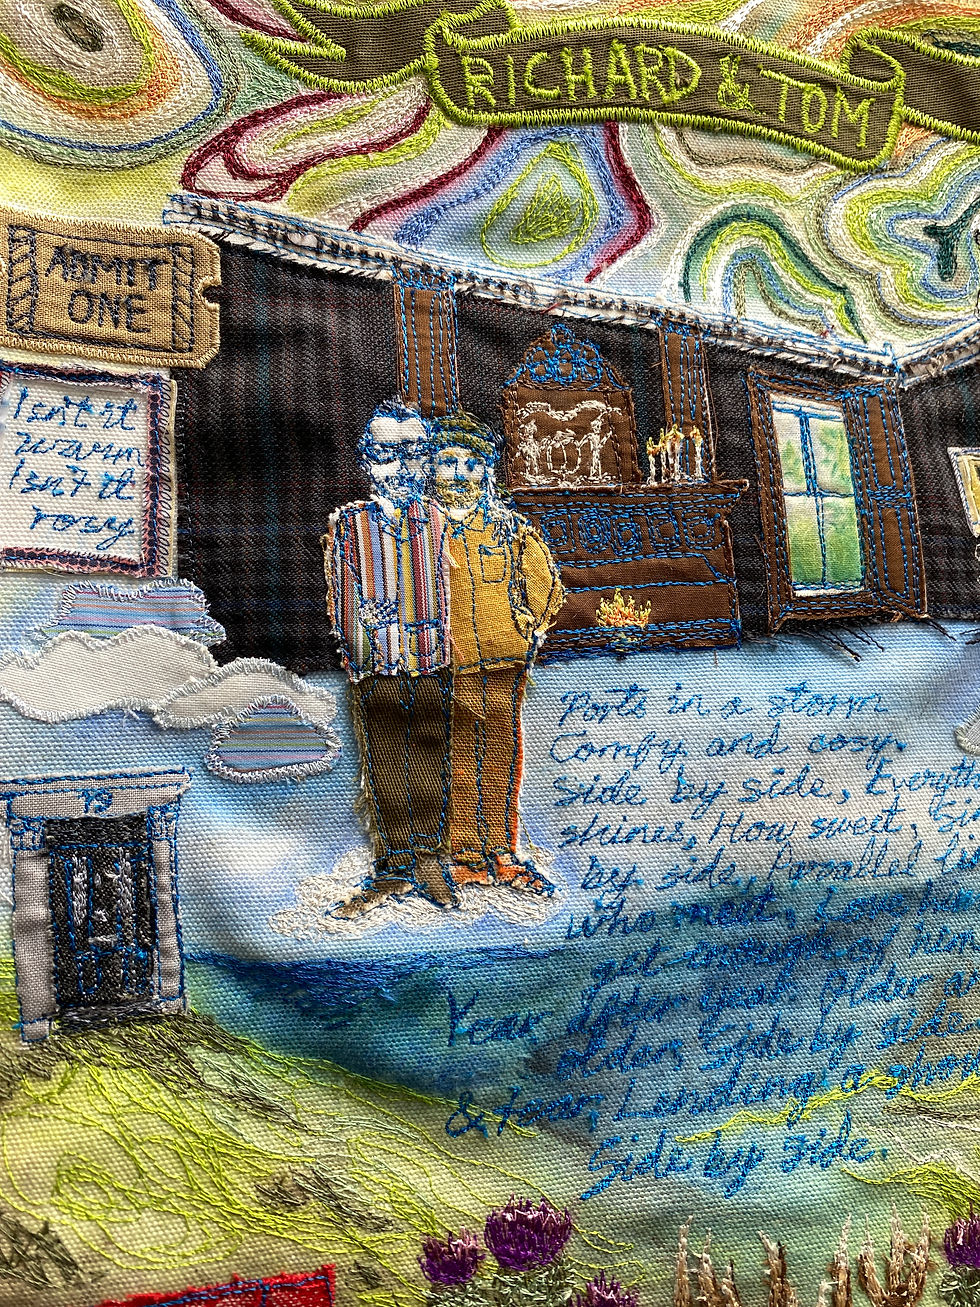 RICHARD & TOM
ADMIT
ONE
Isn't it
warm
Isn't it
rosy
Ports in a storm
Comfy and cosy.
Side by side, Everyth
shines, How sweet, Si
by side, Parallel li
who meet, Love
get enough of
Year after year. Older an
older Side by side
& four, Lending a shou
Side by side.
73